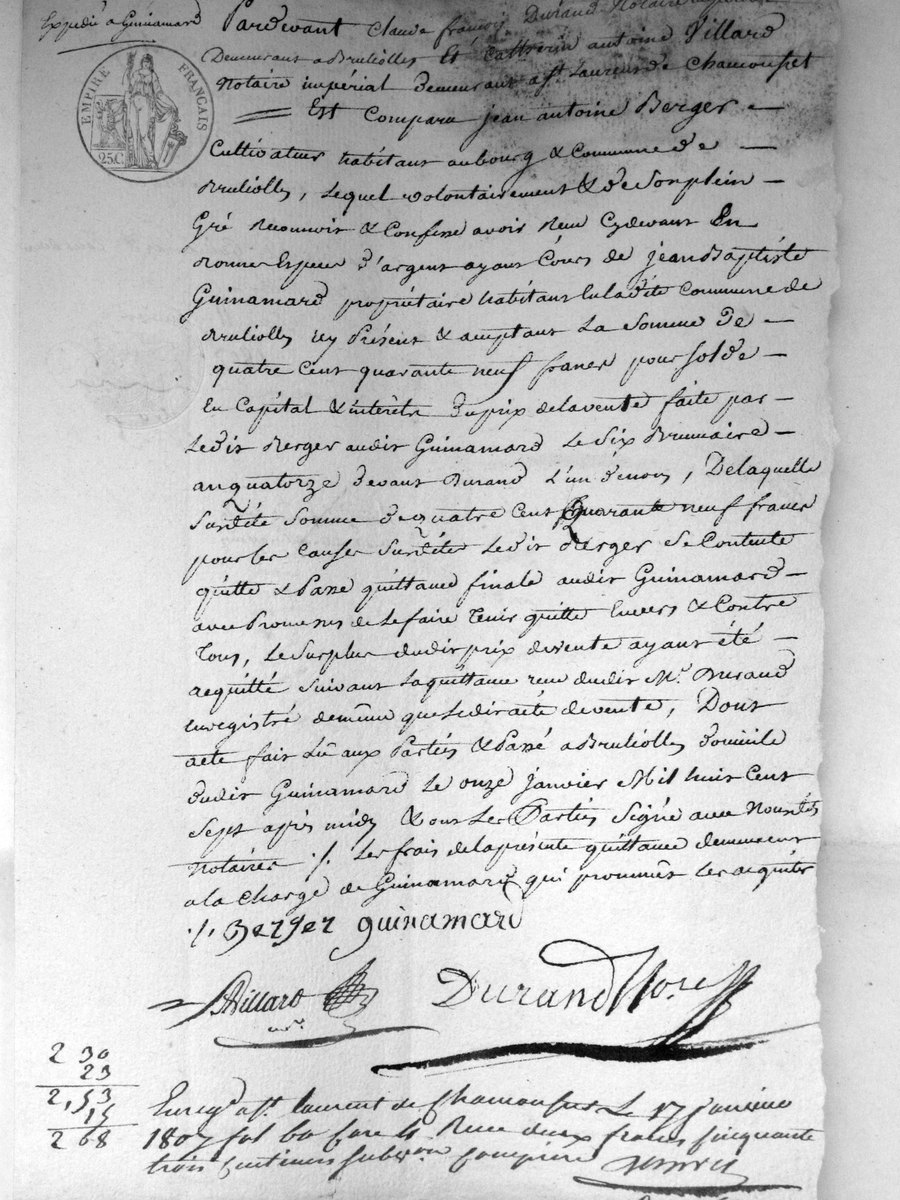 Expédié a Guinamard
EMPIRE FRANÇAIS
25 C.
Pardevant Claude françois Durand Notaire
Demeurant a Bruliolles Et Catherin antoine Villard
Notaire impérial demeurant a St Laurent de Chamousset
Est Comparu jean antoine Berger
Cultivateur habitant au bourg & Commune de
Bruliolles, Lequel volontairement & de Son plein
Gré Reconnoit & Confesse avoir Reçu Cydevant En
bonnes Especes d'argent ayant Cours de jean Baptiste
Guinamard propriétaire habitant en ladite Commune de
Bruliolles icy Présent & acceptant La Somme de
quatre Cent quarante neuf francs pour Solde
En Capital & intérêts du prix de la vente faite par
Ledit Berger audit Guinamard Le Six Brumaire
an quatorze devant Durand L'un de nous, De laquelle
Susdité Somme de quatre Cent Quarante neuf francs
pour les Causes Susdités Ledit Berger Se Contente
quitte & Passe quittance finale audit Guinamard
avec Promesses de Le faire Tenir quitte Envers & Contre
Tous, Le Surplus dudit prix de vente ayant été
acquitté Suivant La quittance reçue dudit Me. Durand
Enregistré de même que Ledit acte de vente, Dont
acte fait Lû aux Parties & Passé a Brulliolles domicile
dudit Guinamard Le onze janvier Mil huit Cent
Sept après midy & ont Les Parties Signé avec Nousdits
Notaires ./. Les frais de la présente quittance demeurent
a la Charge de Guinamard qui promet Les acquitter
./. Berger guinamard
Villard Durand Nore
2 30
23
2,53
15
2 68
Enregé a St laurent de Chamousset Le 17 janvier
1807 fol 60 Case 4 Reçu deux francs cinquante
trois Centimes subvon Comprise